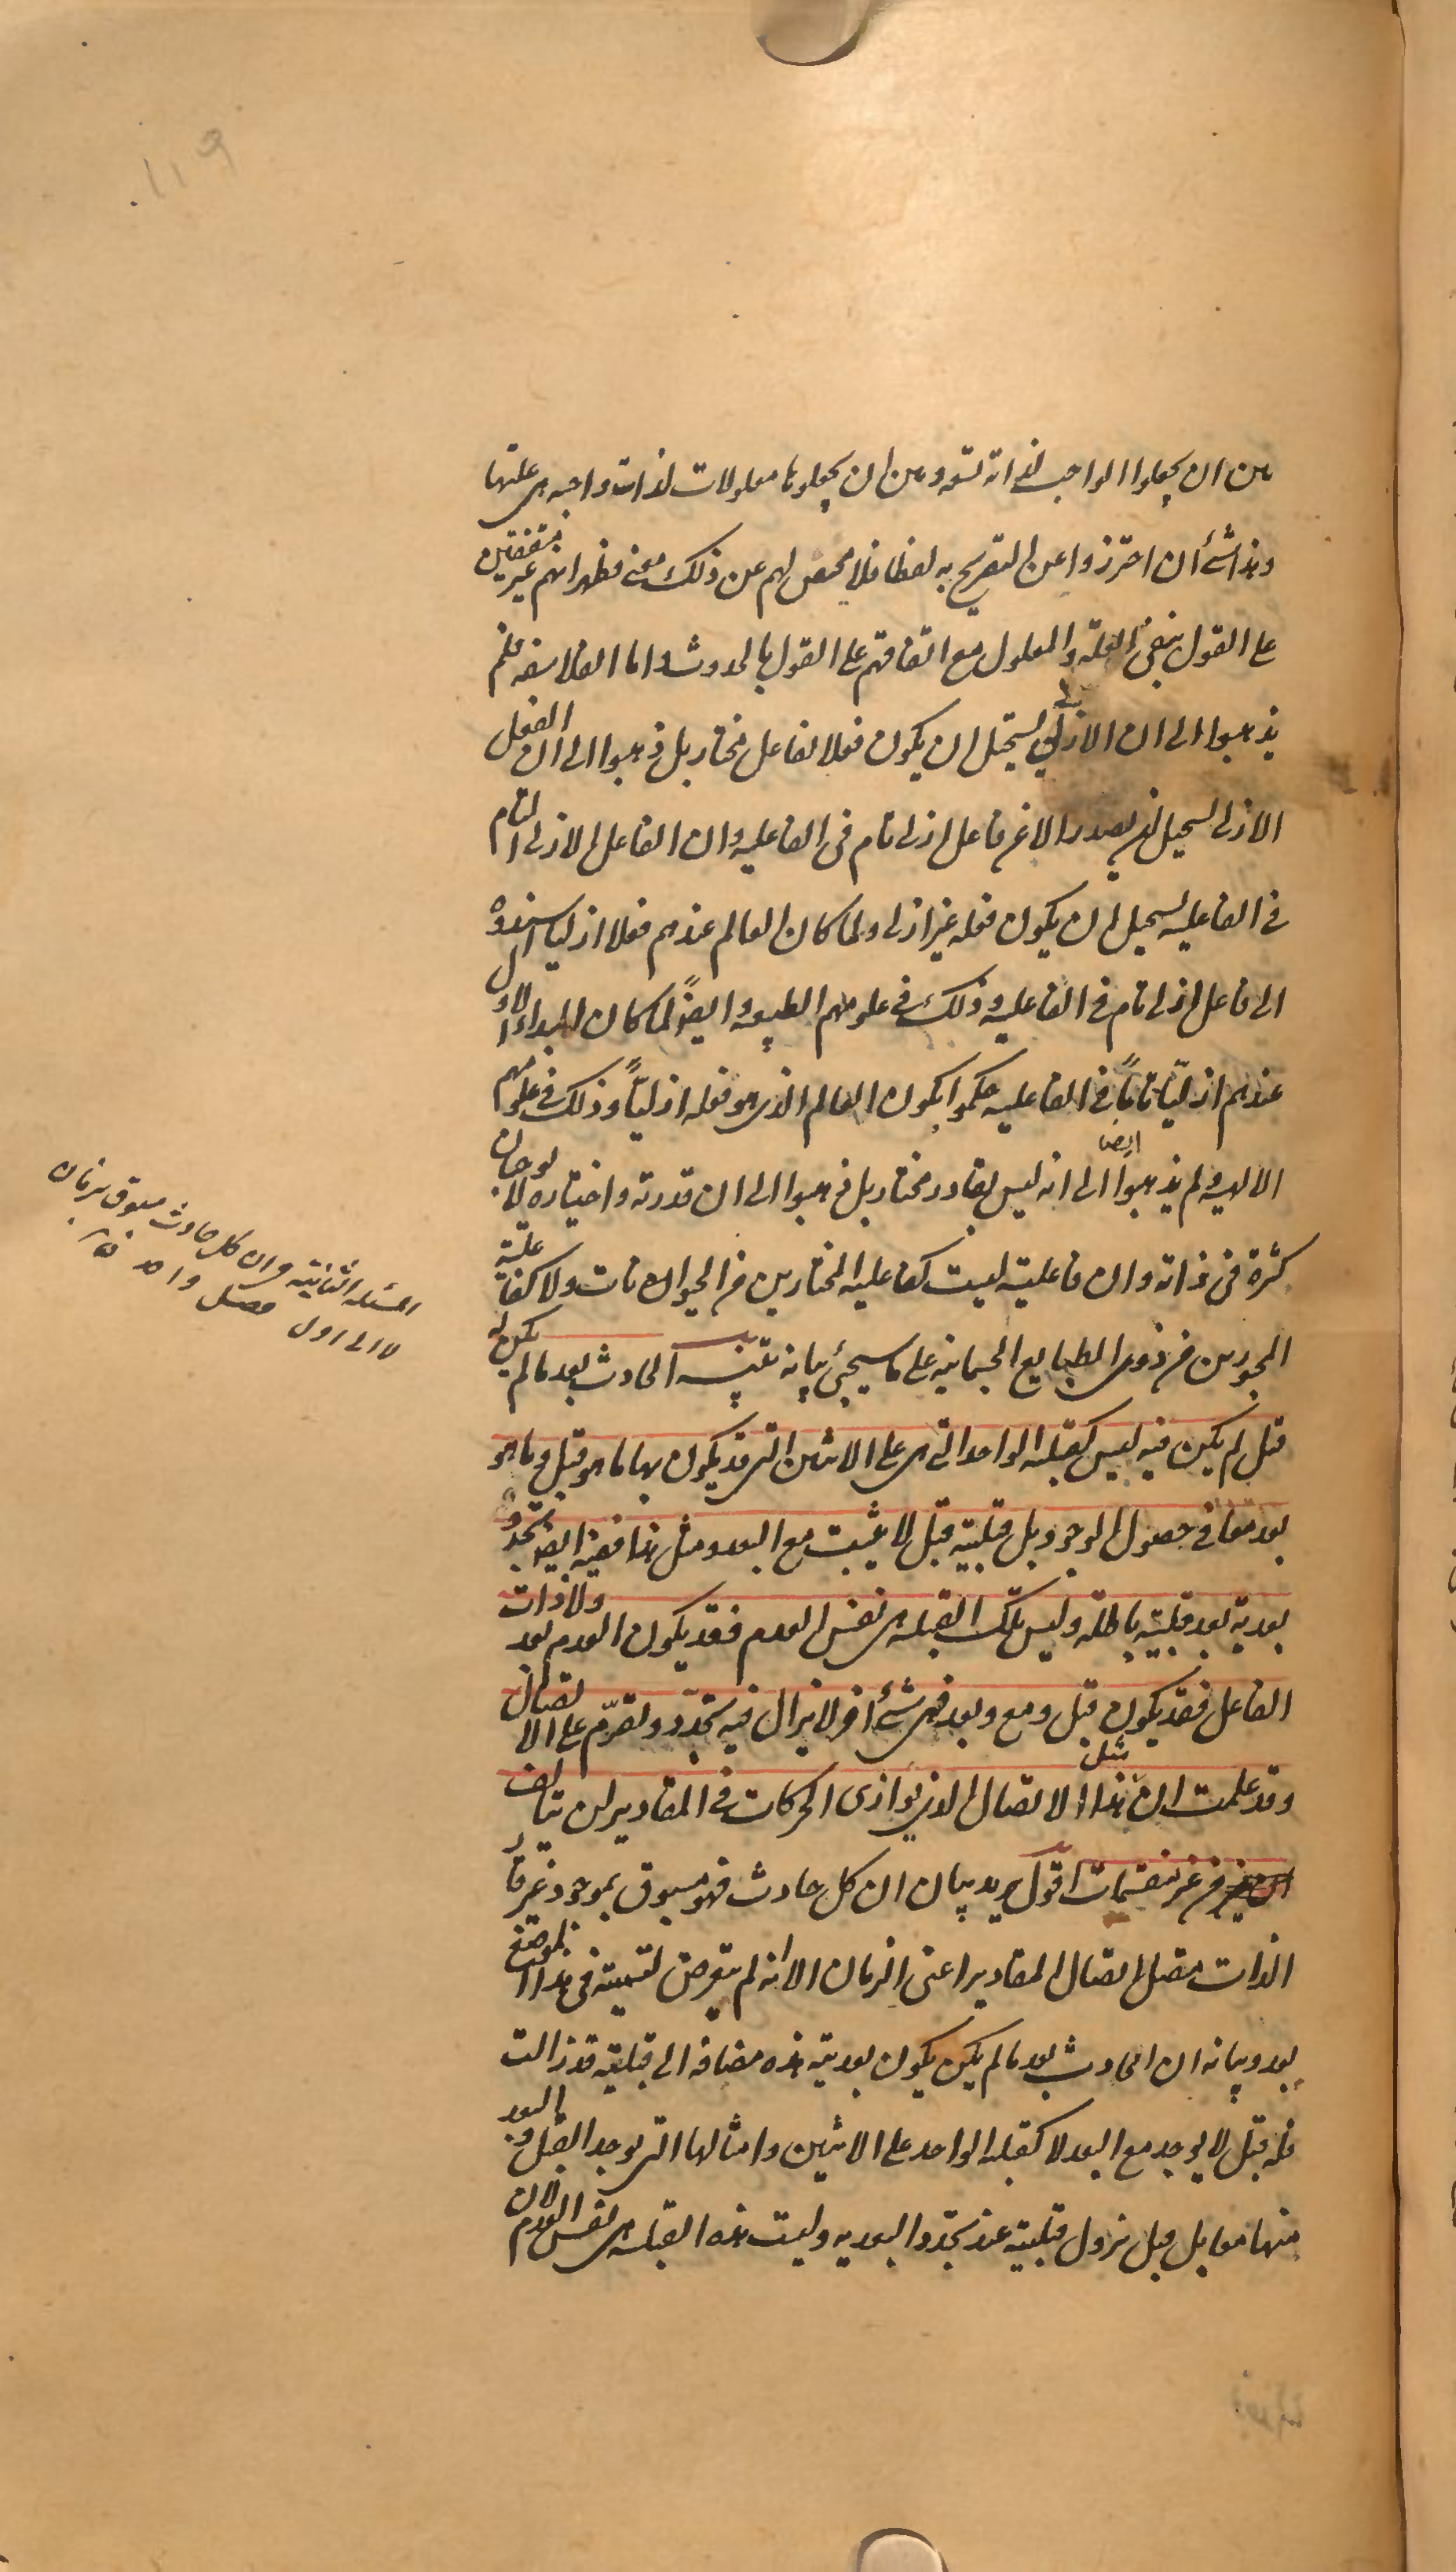 بين ان يجعلوا الواجب لذاته تسعة وبين ان يجعلوها معلولات لذات واجبة هى علتها
وهذا شئ ان احترزوا عن التصريح به لفظا فلا محيص لهم عن ذلك معنى فظهر انهم غير متفقين
على القول بنفى العلة والمعلول مع اتفاقهم على القول بالحدوث واما الفلاسفة فلم
يذهبوا الى ان الازلى يستحيل ان يكون فعلا لفاعل مختار بل ذهبوا الى ان الفعل
الازلى يستحيل ان يصدر الا عن فاعل ازلى تام فى الفاعلية وان الفاعل الازلى التام
فى الفاعلية يستحيل ان يكون فعله غير ازلى ولما كان العالم عندهم فعلا ازليا اسندوه
الى فاعل ازلى تام فى الفاعلية وذلك فى علومهم الطبيعية وايضا لما كان المبداء الاول
عندهم ازليّا تامّاً فى الفاعلية حكموا بكون العالم الذى هو فعله ازليّاً وذلك فى علومهم
الالهية ولم يذهبوا ايضا الى انه ليس بقادر مختار بل ذهبوا الى ان قدرته واختياره لا يوجبان
كثرة فى ذاته وان فاعليته ليست كفاعلية المختارين من الحيوانات ولا كفاعلية
المجبورين من ذوى الطبايع الجسمانية على ما سيجئ بيانه تنبيه الحادث بعد ما لم يكن له
قبل لم يكن فيه ليس كقبلية الواحد التى هى على الاثنين التى قد يكون بها ما هو قبل وما هو
بعد معا فى حصول الوجود بل قبلية قبل لا يثبت مع البعد ومثل هذا ففيه ايضا تجدد
بعدية بعد قبلية باطلة وليس تلك القبلية هى نفس العدم فقد يكون العدم بعد ولا ذات
الفاعل فقد يكون قبل ومع وبعد فهى شئ آخر لا يزال فيه تجدّد وتصرّم على الاتصال
وقد علمت ان مثل هذا الاتصال الذى يوازى الحركات فى المقادير لن يتالف
من غير منقسمات اقول يريد بيان ان كل حادث فهو مسبوق بموجود غير قارّ
الذات متصل اتصال المقادير اعنى الزمان الا انه لم يتعرض لتسميته فى هذا الموضع
بعد وبيانه ان الحادث بعد ما لم يكن يكون بعديته هذه مضافة الى قبلية قد زالت
فله قبل لا يوجد مع البعد لا كقبلية الواحد على الاثنين وامثالها التى يوجد القبل والبعد
منها معا بل قبل يزول قبليته عند تجدد البعدية وليست هذه القبلية هى نفس العدم لان
المسئلة الثانية وان كل حادث مسبوق بزمان